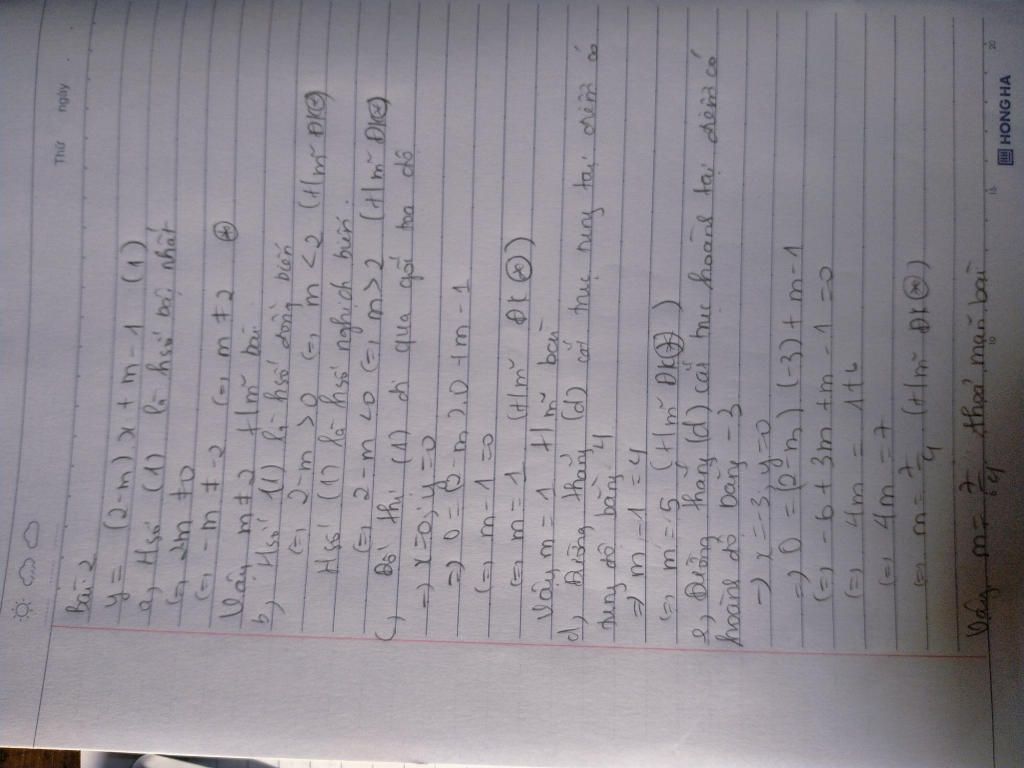 Thứ ngày
Bài 2
y = (2-m)x + m - 1 (1)
a, Hsố (1) là hsố bậc nhất
(=) 2m ≠ 0
(=) -m ≠ -2 (=) m ≠ 2 (*)
Vậy m ≠ 2 t/mãn bài
b, Hsố (1) là hsố đồng biến
(=) 2-m > 0 (=) m < 2 (t/m ĐK(*))
Hsố (1) là hsố nghịch biến.
(=) 2-m < 0 (=) m > 2 (t/m ĐK(*))
c, Đồ thị (1) đi qua gốc toạ độ
→ x=0; y=0
=) 0 = (2-m).0 + m - 1
(=) m - 1 = 0
(=) m = 1 (t/m ĐK(*))
Vậy m = 1 t/m bài
d, Đường thẳng (d) cắt trục tung tại điểm có
tung độ bằng 4
=) m - 1 = 4
(=) m = 5 (t/m ĐK(*))
e, Đường thẳng (d) cắt trục hoành tại điểm có
hoành độ bằng -3
→ x = -3; y = 0
=) 0 = (2-m)(-3) + m - 1
(=) -6 + 3m + m - 1 = 0
(=) 4m = 1+6
(=) 4m = 7
(=) m = 7/4 (t/m ĐK(*))
Vậy m = 7/4 thoả mãn bài
10 15 20
HONG HA